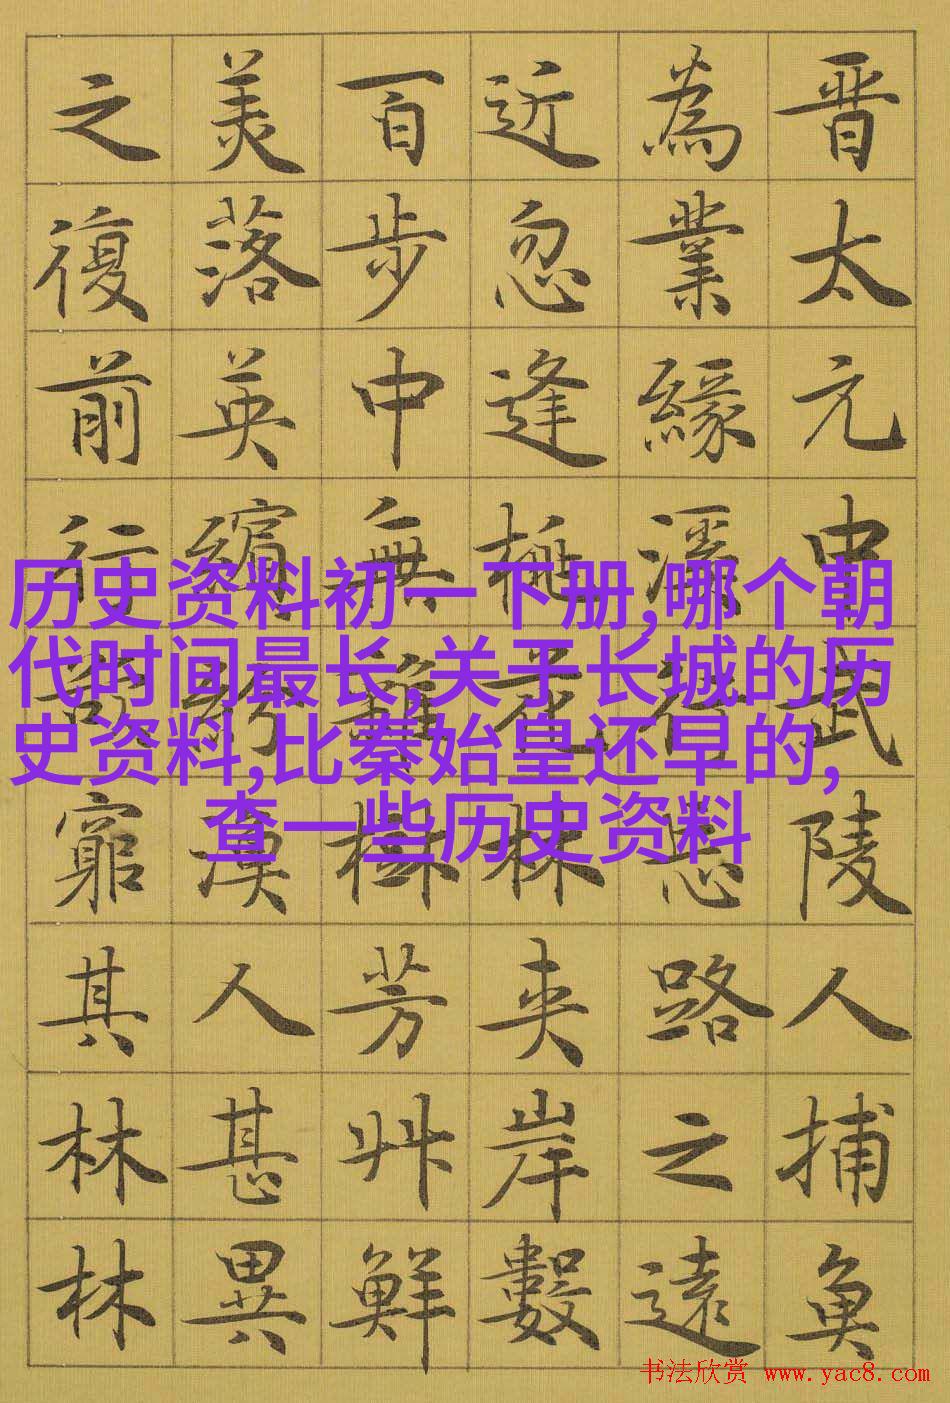 晉太元中武陵人捕魚
為業緣溪行忘路之遠
近忽逢桃花林夾岸數
百步中無雜樹芳艸鮮
美落英繽紛漁人甚異
之復前行欲窮其林林
历史资料初一下册,哪个朝
代时间最长,关于长城的历
史资料,比秦始皇还早的,
查一些历史资料
书法欣赏 www.yac8.com